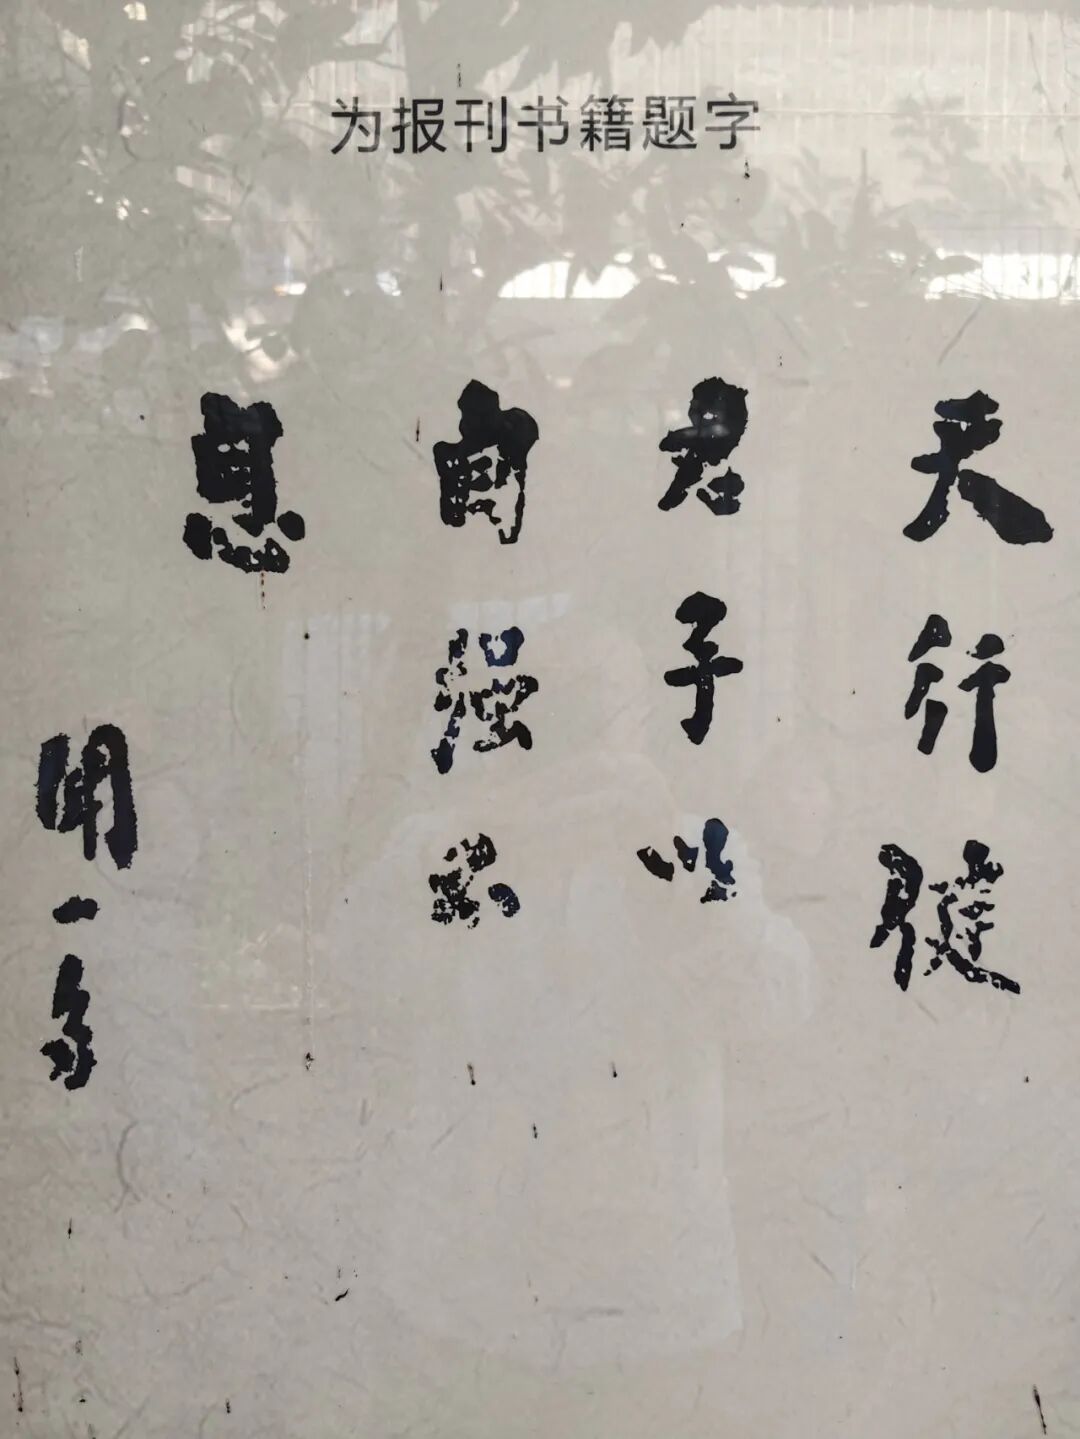 为报刊书籍题字
天行健
君子以
自强不
息
闻一多